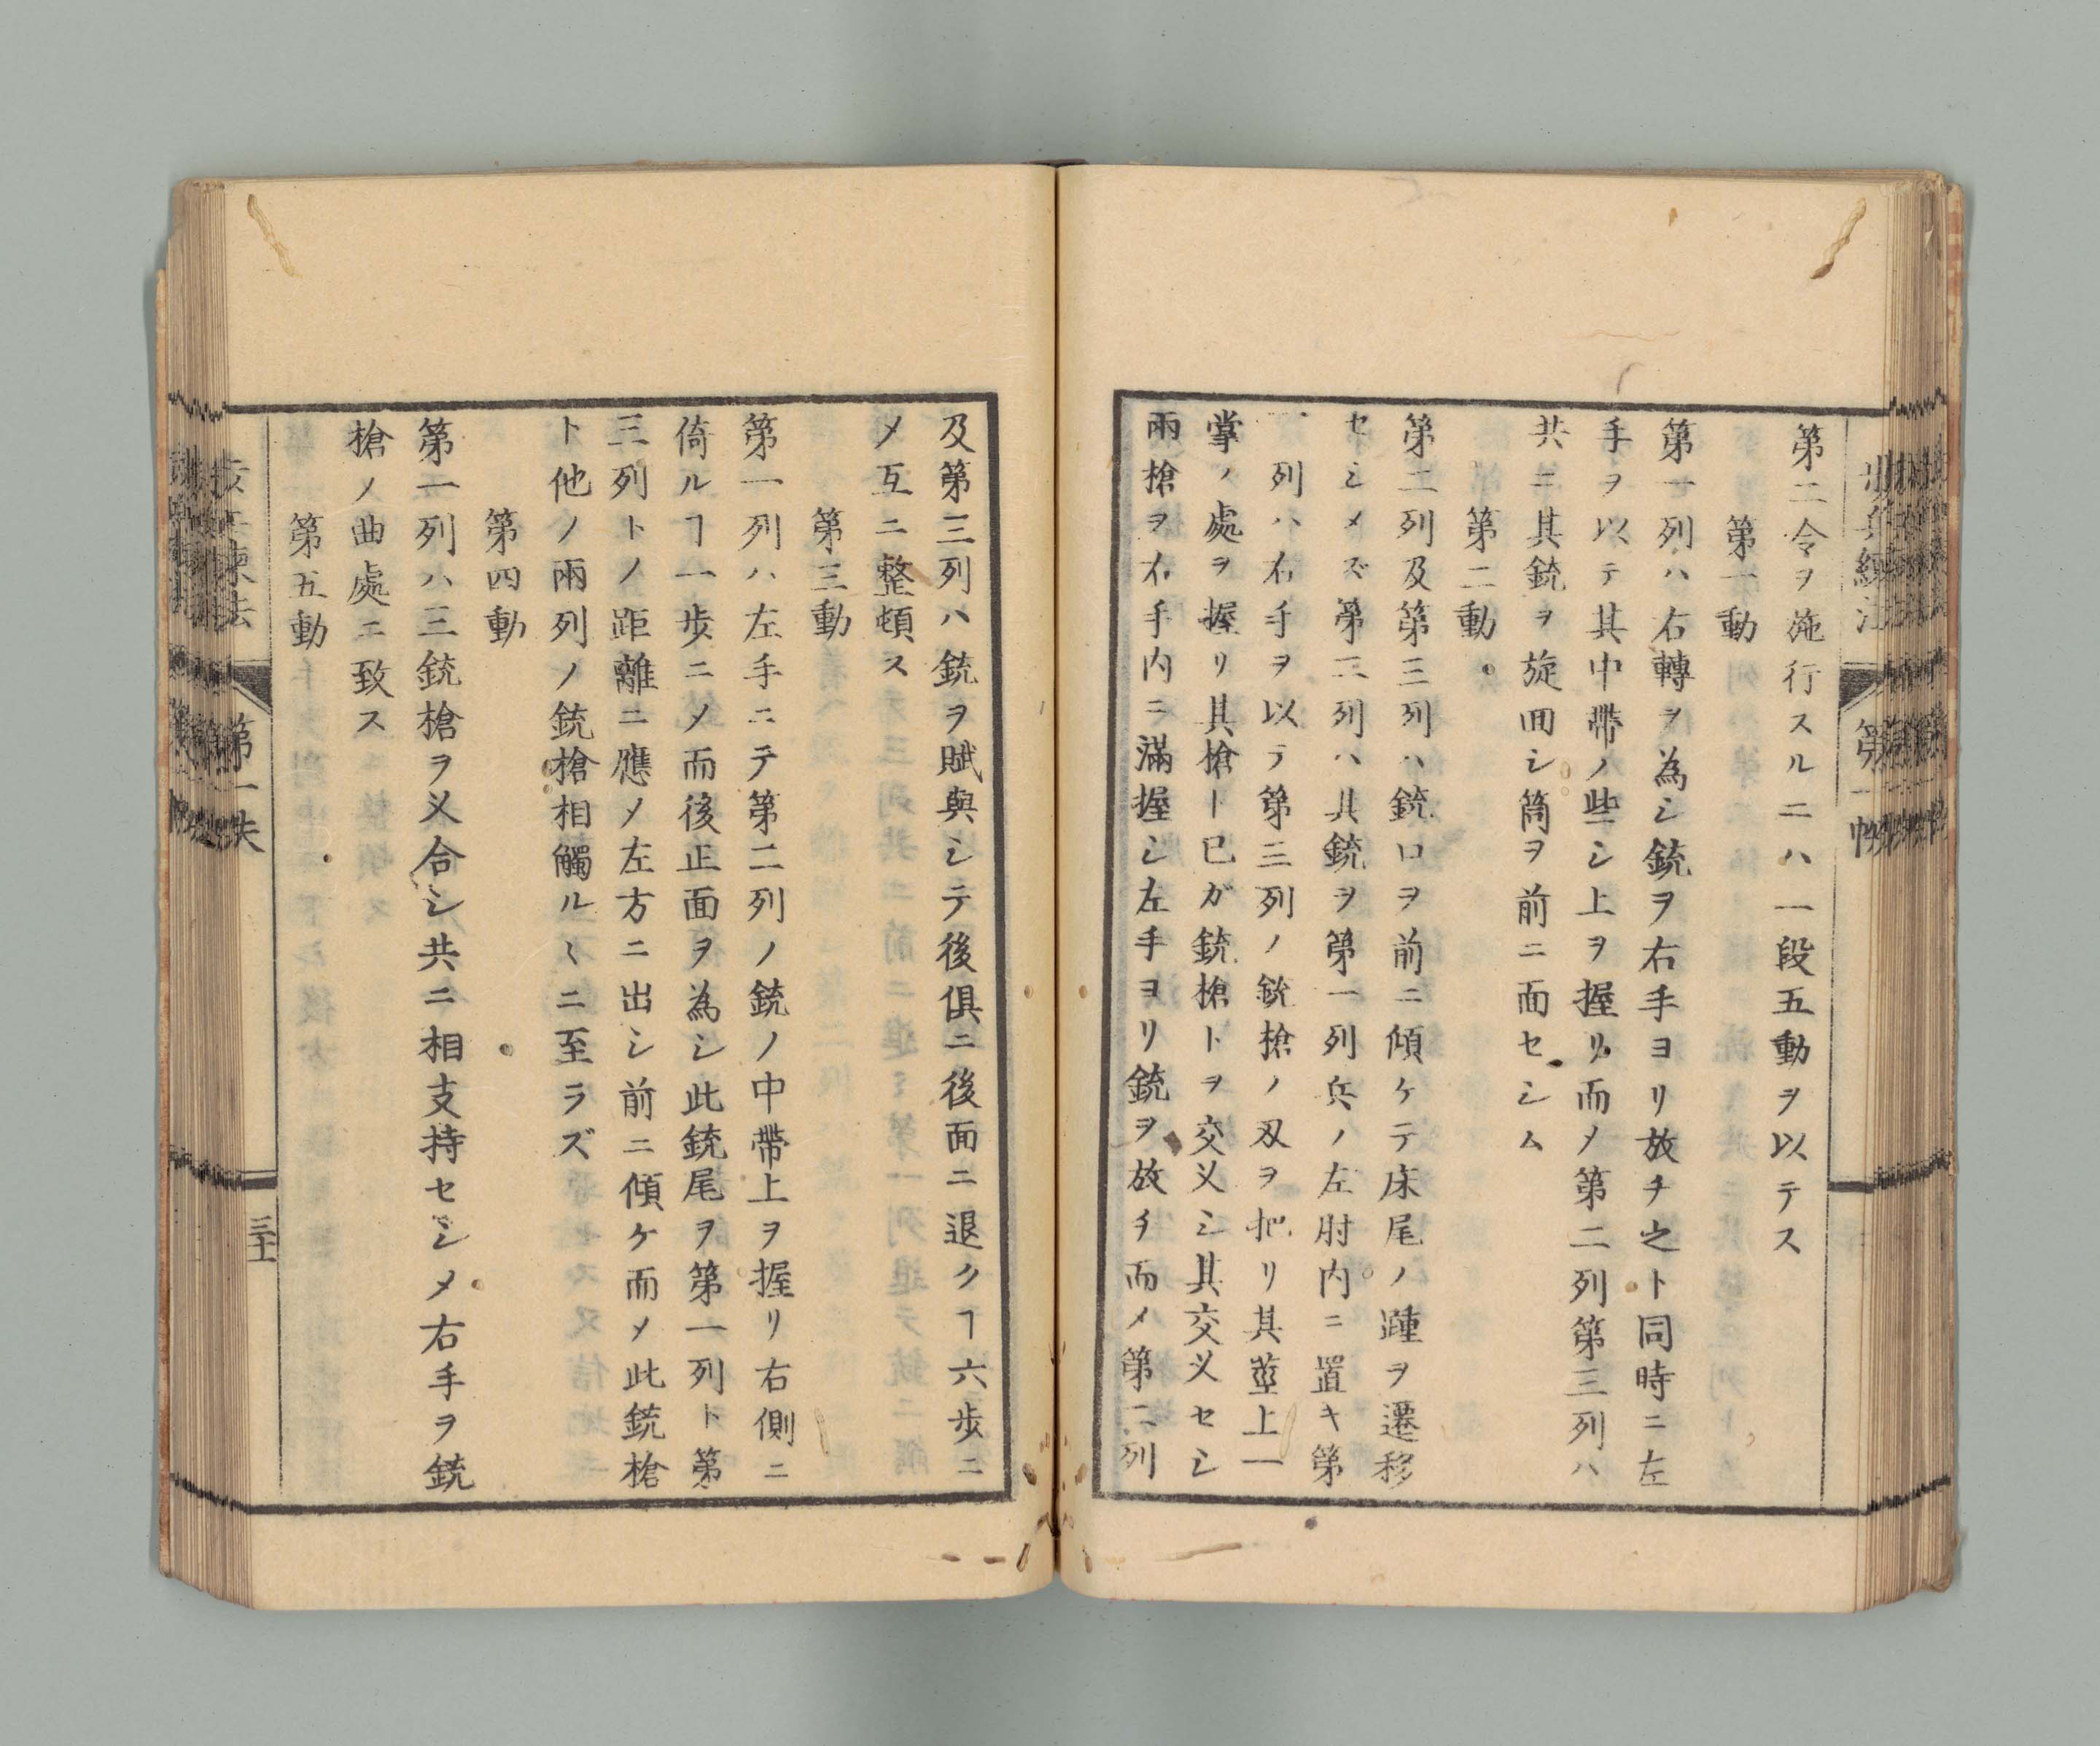 第二令ヲ施行スルニハ一段五動ヲ以テス
第一動
第一列ハ右轉ヲ為シ銃ヲ右手ヨリ放チ之ト同時ニ左
手ヲ以テ其中帶ノ些シ上ヲ握リ而メ第二列第三列ハ
共ニ其銃ヲ旋囬シ筒ヲ前ニ面セシム
第二動
第二列及第三列ハ銃口ヲ前ニ傾ケテ床尾ノ踵ヲ遷移
セシメズ第二列ハ其銃ヲ第一列兵ノ左肘内ニ置キ第
一列ハ右手ヲ以テ第三列ノ銃槍ノ刄ヲ把リ其莖上一
掌ノ處ヲ握リ其槍ト已ガ銃槍トヲ交乂シ其交乂セシ
兩槍ヲ右手内ニ滿握シ左手ヨリ銃ヲ放チ而メ第二列
及第三列ハ銃ヲ賦與シテ後俱ニ後面ニ退クヿ六歩ニ
メ互ニ整頓ス
第三動
第一列ハ左手ニテ第二列ノ銃ノ中帶上ヲ握リ右側ニ
倚ルヿ一歩ニメ而後正面ヲ為シ此銃尾ヲ第一列ト第
三列トノ距離ニ應メ左方ニ出シ前ニ傾ケ而メ此銃槍
ト他ノ兩列ノ銃槍相觸ルヽニ至ラズ
第四動
第一列ハ三銃槍ヲ乂合シ共ニ相支持セシメ右手ヲ銃
槍ノ曲處ニ致ス
第五動
歩兵練法
第一帙
三十